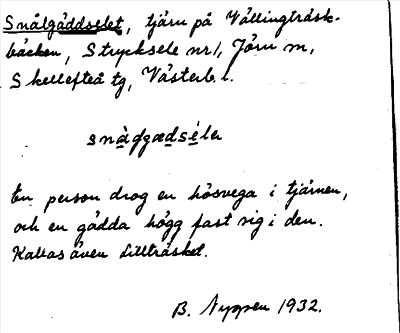 Snålgäddselet, tjärn på Vällingträsk-
bäcken, Strycksele nr 1, Jörn sn,
Skellefteå tg, Västerb. l.
snålgædséle
En person drog en hösvega i tjärnen,
och en gädda högg fast sig i den.
Kallas även Lillträsket.
B. Nyppen 1932.